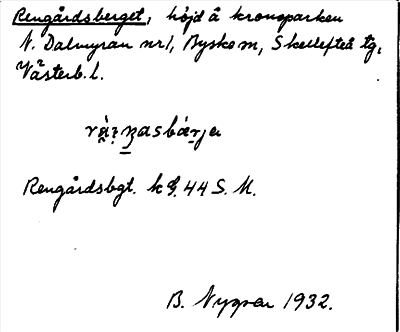 Rengårdsberget, höjd å kronoparken
N. Dalmyran nr 1, Byske sn, Skellefteå tg,
Västerb. l.
Rengårdsbgt. k bl. 44 S. M.
B. Nygren 1932.